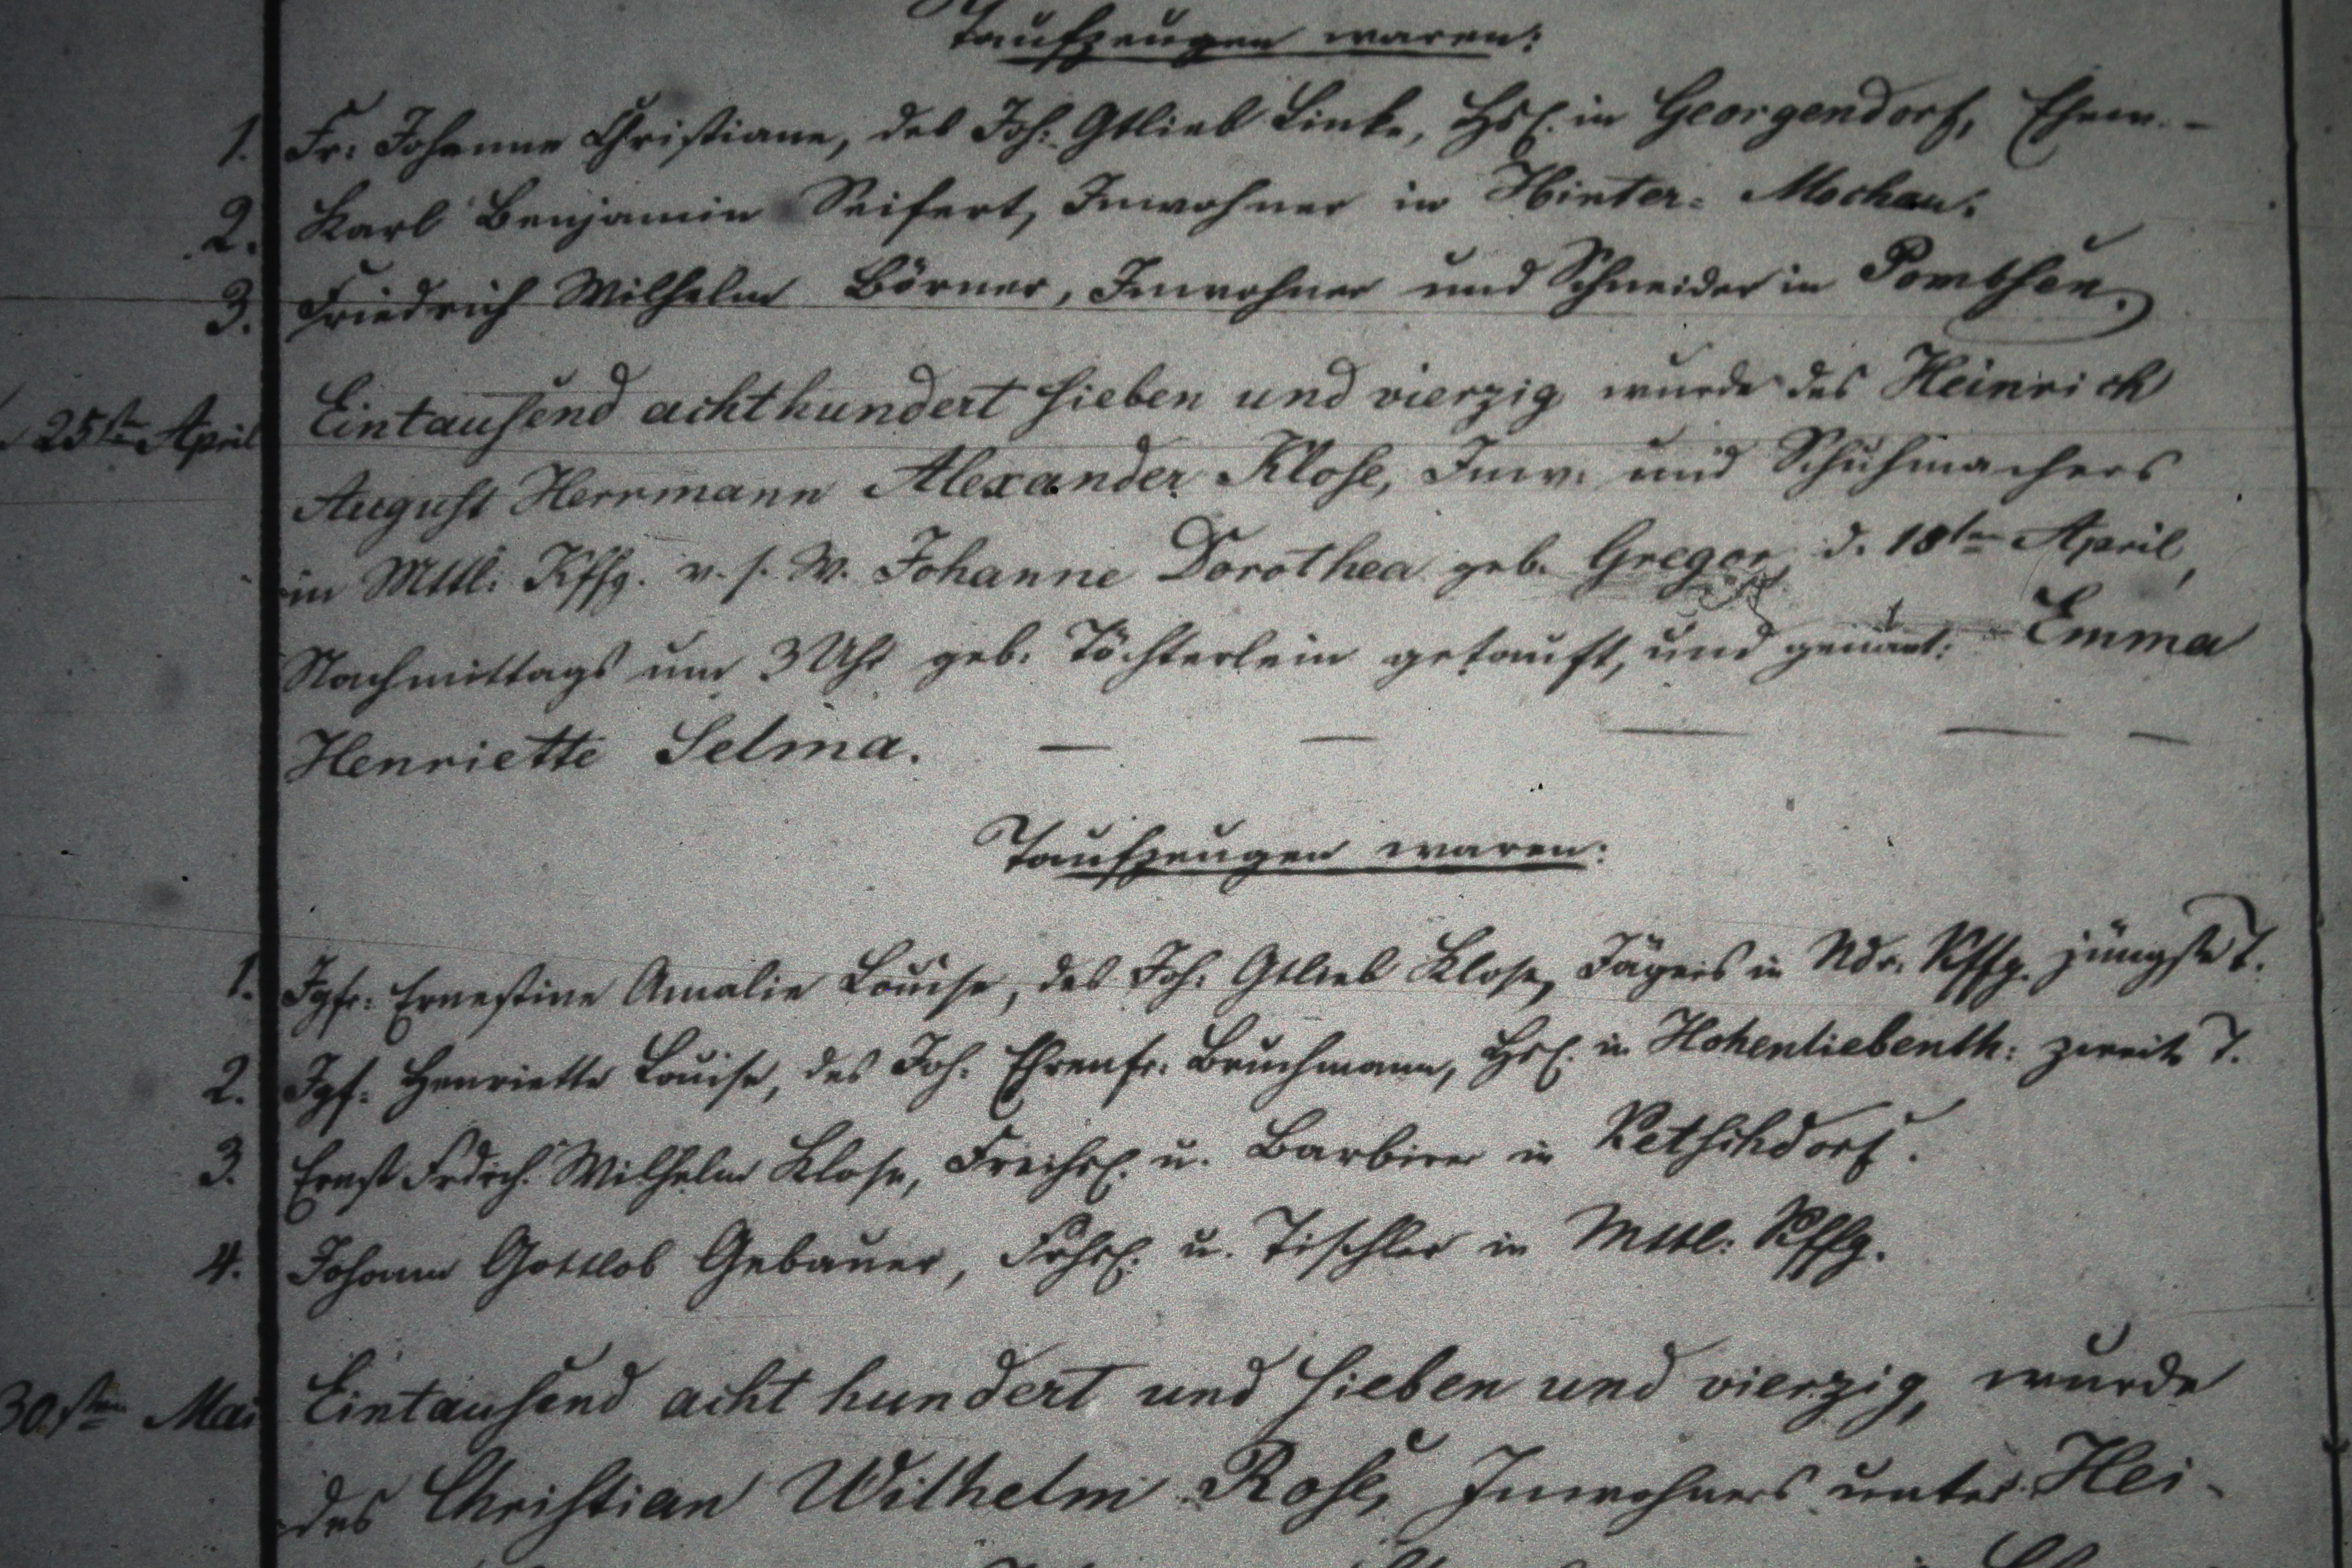 Taufzeugen waren:
1. Fr: Johanne Christiane, des Joh: Gtlieb Linke, Hsl. in Georgendorf, Ehew. –
2. Karl Benjamin Seifert, Inwohner in Hinter= Mochau.
3. Friedrich Wilhelm Börner, Inwohner und Schneider in Pombsen.
25ten April Eintausend achthundert sieben und vierzig wurde des Heinrich
August Herrmann Alexander Klose, Inw. und Schuhmachers
in Mttl: Kffg. v. s. W. Johanne Dorothea geb. Gregor, d. 18ten April,
Nachmittags um 3 Uhr geb. Töchterlein getauft, und genānt: Emma
Henriette Selma. — — — — —
Taufzeugen waren:
1. Jgfr: Ernestine Amalie Louise, des Joh: Gtlieb Klose, Jägers in Ndr. Kffg. jüngste T.
2. Jgf: Henriette Louise, des Joh. Ehrenfr: Bruchmann, Hsl. in Hohenliebenth: zweite T.
3. Ernst Frdrch. Wilhelm Klose, Freihsl. u. Barbier in Ketschdorf.
4. Johann Gottlob Gebauer, Frhsl. u. Tischler in Mttl: Kffg.
30.sten Mai Eintausend acht hundert und sieben und vierzig, wurde
des Christian Wilhelm Rose, Inwohners unter Hei-